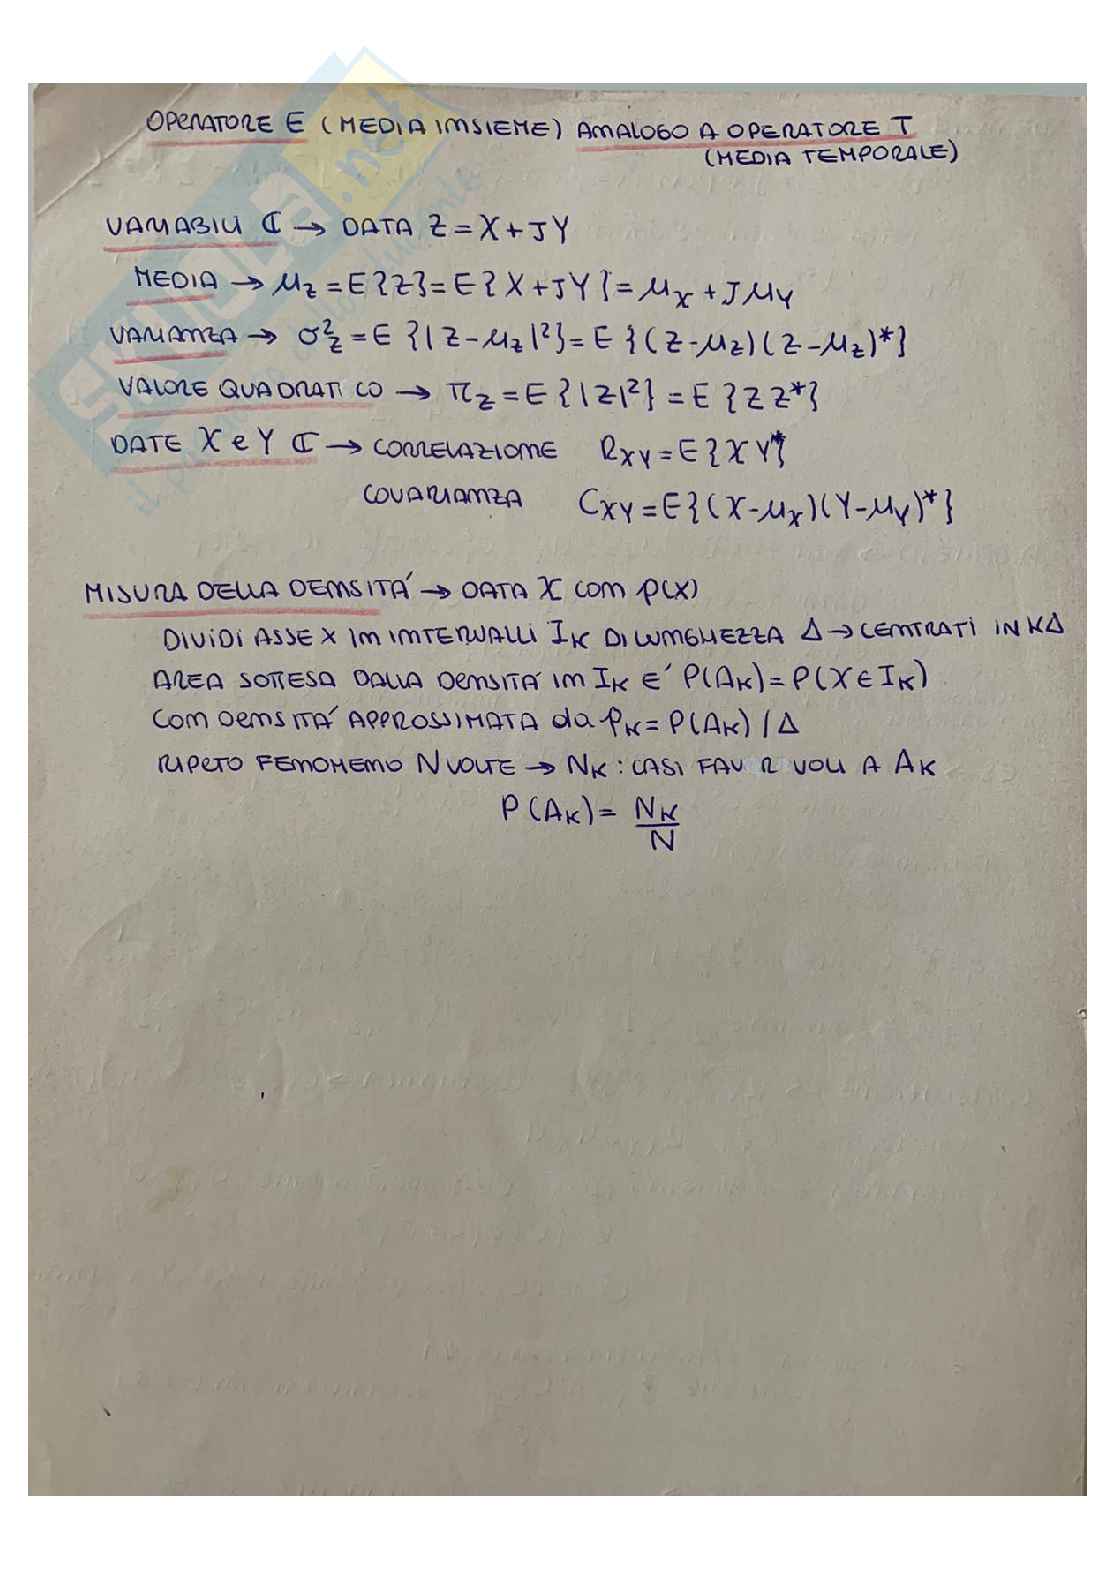 OPERATORE E (MEDIA INSIEME) ANALOGO A OPERATORE T
(MEDIA TEMPORALE)
VARIABILI ℂ → DATA Z = X + JY
MEDIA → μ_Z = E{Z} = E{X + JY} = μ_X + Jμ_Y
VARIANZA → σ²_Z = E{|Z-μ_Z|²} = E{(Z-μ_Z)(Z-μ_Z)*}
VALORE QUADRATICO → π_Z = E{|Z|²} = E{ZZ*}
DATE X e Y ℂ → CORRELAZIONE R_XY = E{XY*}
COVARIANZA C_XY = E{(X-μ_X)(Y-μ_Y)*}
MISURA DELLA DENSITÁ → DATA X con p(x)
DIVIDI ASSE X IN INTERVALLI I_K DI LUNGHEZZA Δ → CENTRATI IN KΔ
AREA SOTTESA DALLA DENSITÁ in I_K E' P(A_K) = P(X ∈ I_K)
CON DENSITÁ APPROSSIMATA da p_K = P(A_K) / Δ
RIPETO FENOMENO N VOLTE → N_K : CASI FAV R VOLI A A_K
P(A_K) = N_K / N
SKUOLA.net